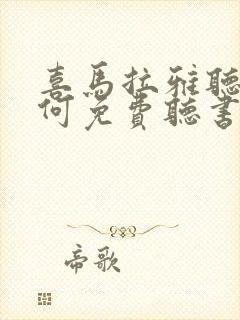 喜馬拉雅聽
何免費聽書
帝歌